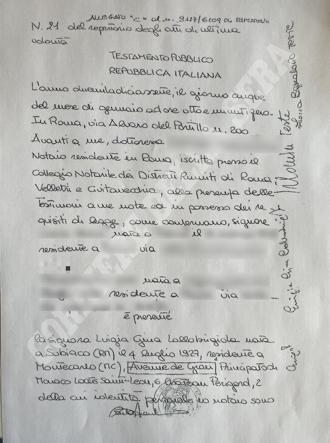 ALLEGATO "C" al n. 9117/6109 di REPERTORIO
N. 21 del repertorio degli atti di ultima
volontà
TESTAMENTO PUBBLICO
REPUBBLICA ITALIANA
L'anno duemiladiciassette, il giorno cinque
del mese di gennaio ad ore otto e minuti zero.
In Roma, via Alvaro del Portillo n. 200
Avanti a me, dottoressa
Notaio residente in Roma, iscritta presso il
Collegio Notarile dei Distretti Riuniti di Roma,
Velletri e Civitavecchia, alla presenza delle
testimoni a me note ed in possesso dei re
quisiti di legge, come confermano, signore
nata a il
residente a via
nata a
residente a via
è presente
la signora Luigia Gina Lollobrigida nata
a Subiaco (RM) il 4 luglio 1927, residente a
Montecarlo (MC), Avenue de Grand Principato di
Monaco
della cui identità personale io notaio sono
teste
CORRIERE DELLA SERA